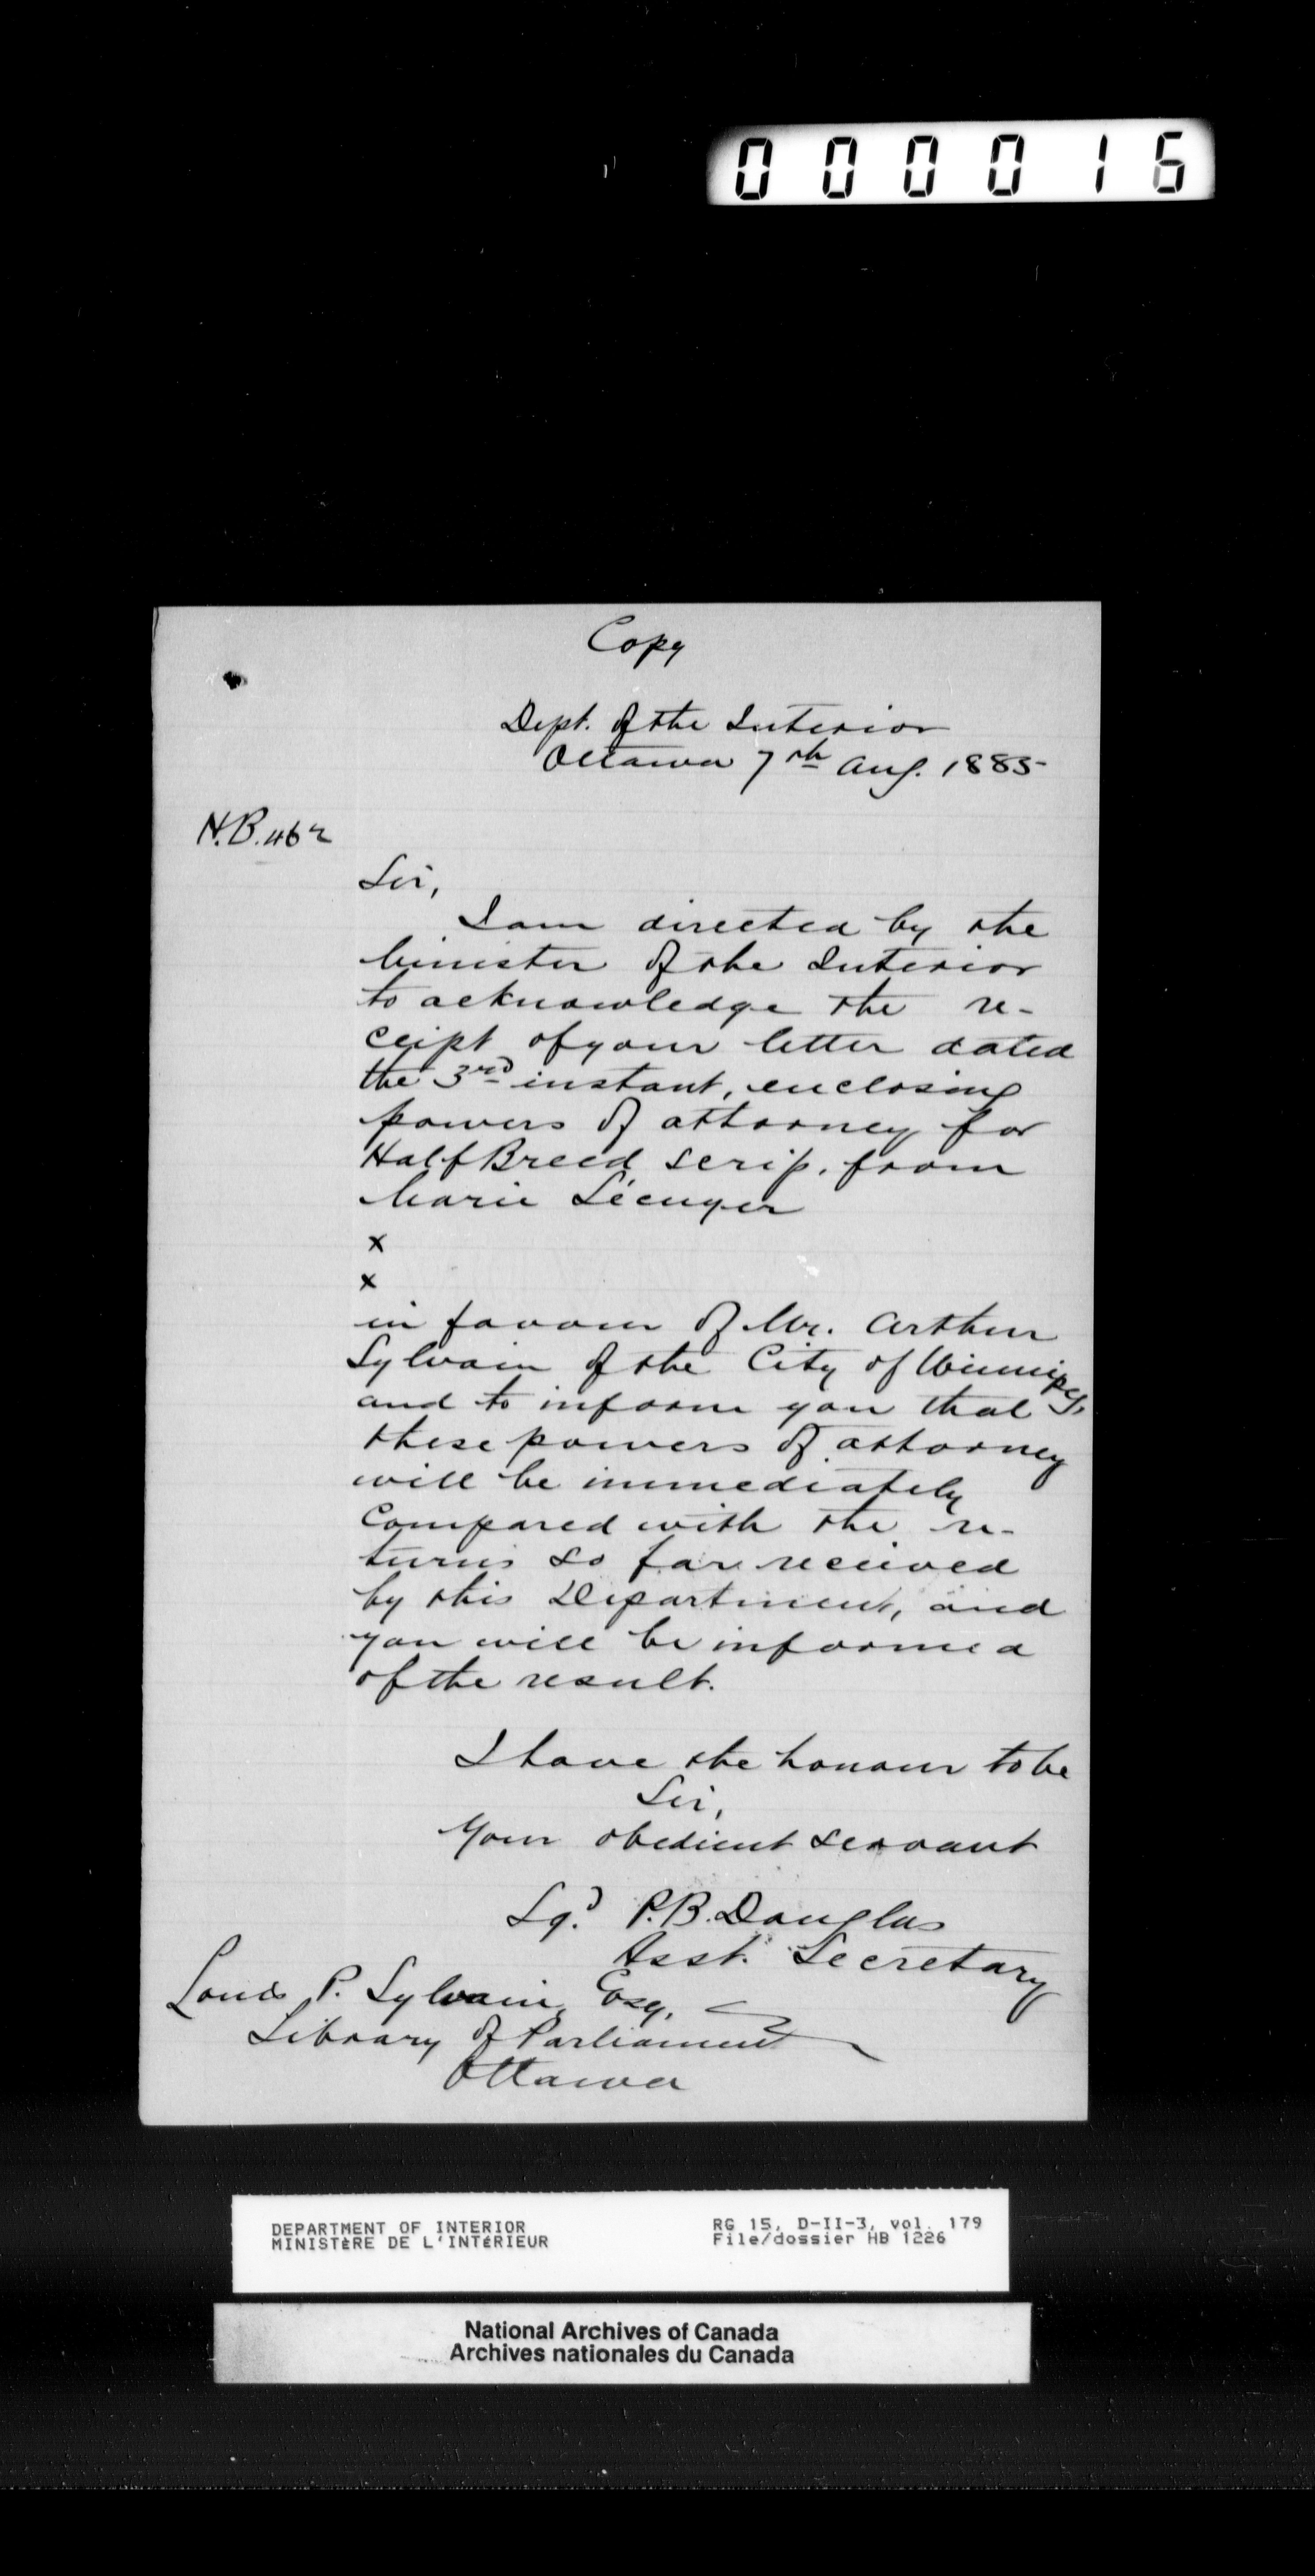 000016
Copy
Dept. of the Interior
Ottawa 7th Aug. 1885
H.B. 462
Sir,
I am directed by the
Minister of the Interior
to acknowledge the re-
ceipt of your letter dated
the 3rd instant, enclosing
powers of attorney for
Half Breed scrip, from
Marie
x
x
in favour of Mr. Arthur
Sylvain of the City of Winnipeg,
and to inform you that
these powers of attorney
will be immediately
Compared with the re-
turns so far received
by this Department, and
you will be informed
of the result.
I have the honour to be
Sir,
Your obedient servant
Sgd P.B. Douglas
Asst. Secretary
Louis P. Sylvain, Esq.
Library of Parliament
Ottawa
DEPARTMENT OF INTERIOR
MINISTÈRE DE L'INTÉRIEUR
RG 15, D-II-3, vol. 179
File/dossier HB 1226
National Archives of Canada
Archives nationales du Canada